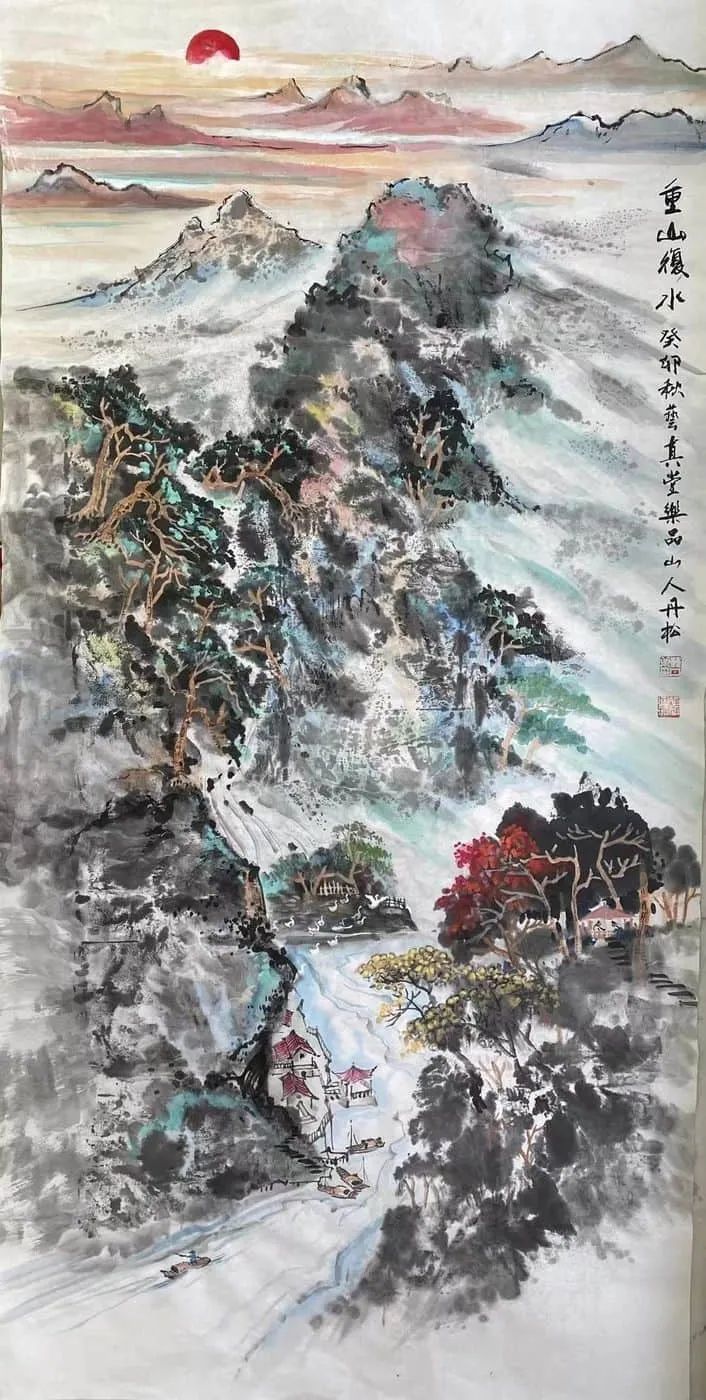 重山復水 癸卯秋藝真堂樂品山人丹松